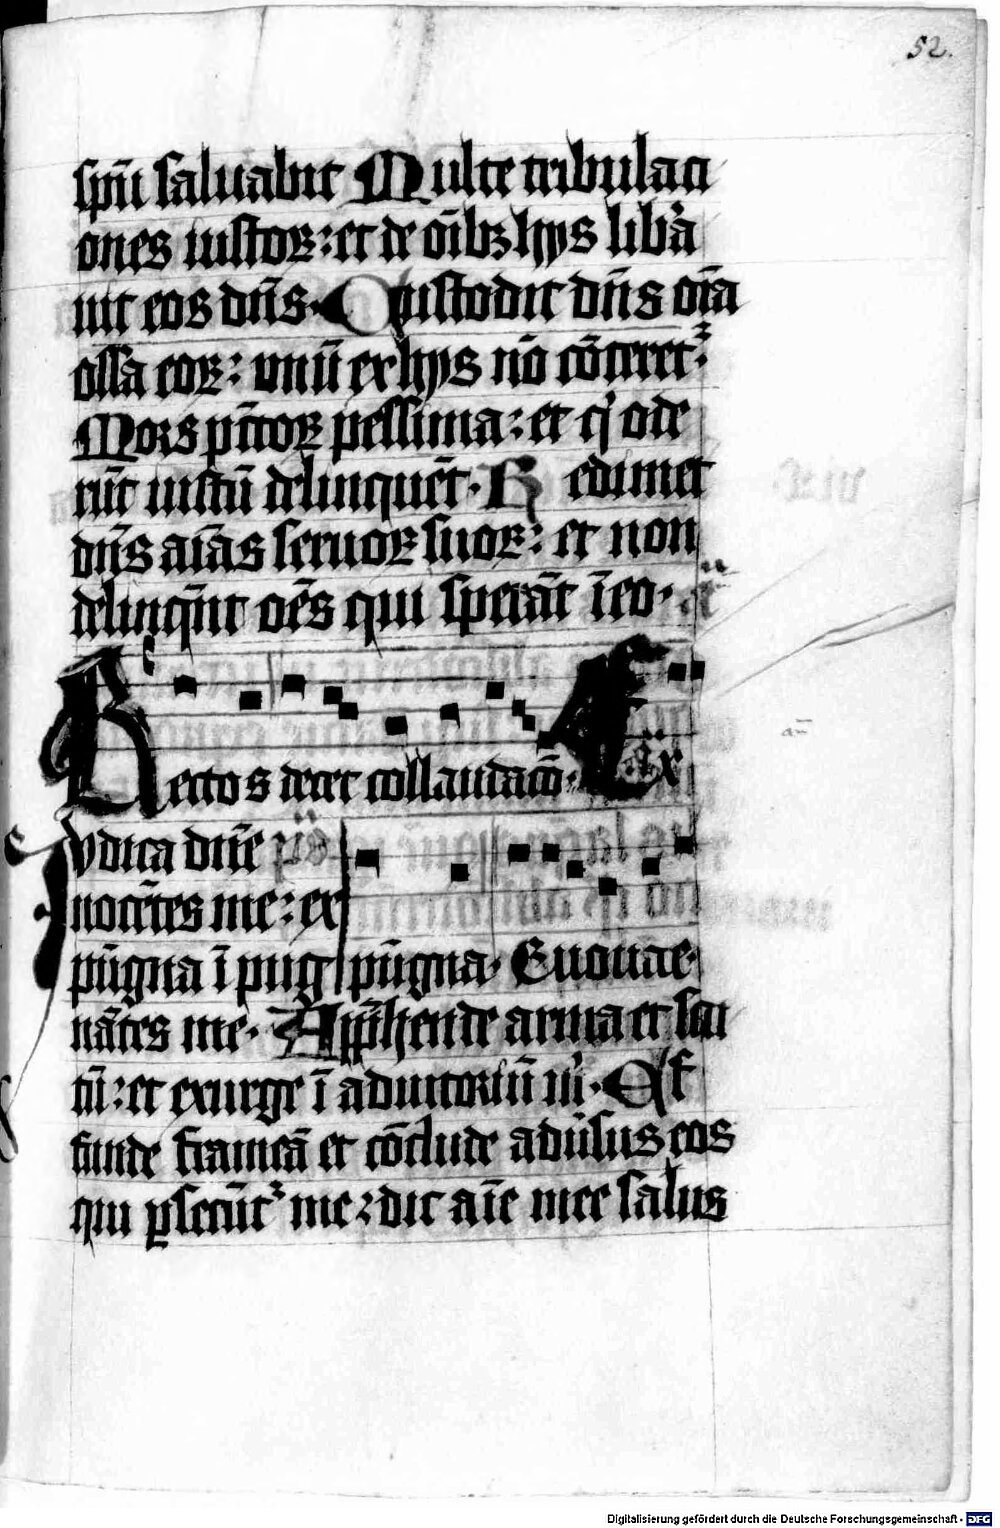 52.
spū saluabit Multe tribulaci
ones iustoꝝ: et de oībꝫ hijs libͣa
uit eos dn̄s. Custodit dn̄s oīa
ossa eoꝝ: vnū ex hijs nō cōteret᷑.
Mors pctōꝝ pessima: et qͥ ode
rūt iustū delinquēt. Redimet
dn̄s aīas seruoꝝ suoꝝ: et non
delinqn̄t oēs qui sperāt ī eo. añ
Rectos decet collaudacō. Ex
Iudica dn̄e ps
nocētes me: ex
pūgna īpug pūgna. Euouae.
nātes me. Apphende arma et scu
tū: et exurge ī adiutoriū m̄. Ef
funde frameā et cōclude aduͥsus eos
qui ꝑsecūt᷑ me: dic aīe mee salus
Digitalisierung gefördert durch die Deutsche Forschungsgemeinschaft - DFG